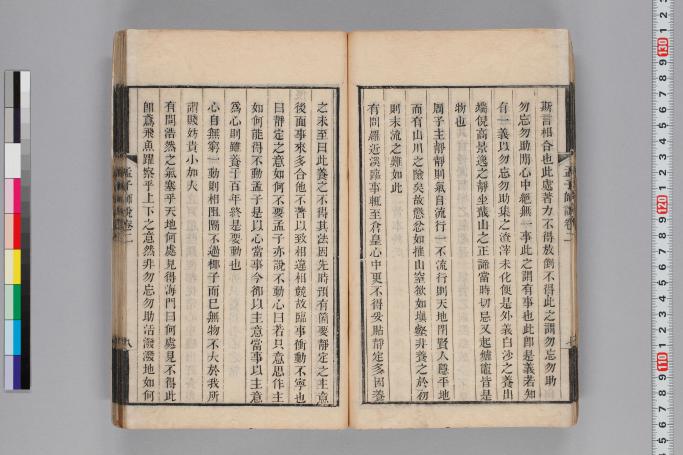 斯言相合也此處著力不得放倒不得此之謂勿忘勿助
勿忘勿助間心中絕無一事此之謂有事也此卽是義若知
有一義以勿忘勿助集之渣滓未化便是外義白沙之養出
端倪高景逸之靜坐蕺山之正諦當時切忌又起爐竈皆是
物也
周子主靜靜則氣自流行一不流行則天地閉賢人隱平地
而有山川之險矣故懲忿如推山窒欲如填壑非養之於初
則末流之難如此
有問羅近溪臨事輒至倉皇心中更不得妥貼靜定多因養
之未至曰此養之不得其法因先時預有箇要靜定之主意
後面事來多合他不著以致相違相競故臨事衝動不寧也
曰靜定之意如何不要孟子亦說不動心曰若只意思作主
如何能得不動孟子是以心當事今却以主意當事以主意
爲心則雖養于百年終是要動也
心自無窮一動則相阻隔不過椰子而已無物不大於我所
謂賤妨貴小加大
有問浩然之氣塞乎天地何處見得海門曰何處見不得此
卽鳶飛魚躍察乎上下之意然非勿忘勿助活潑潑地如何
孟子師說卷二
孟子師說卷二
八